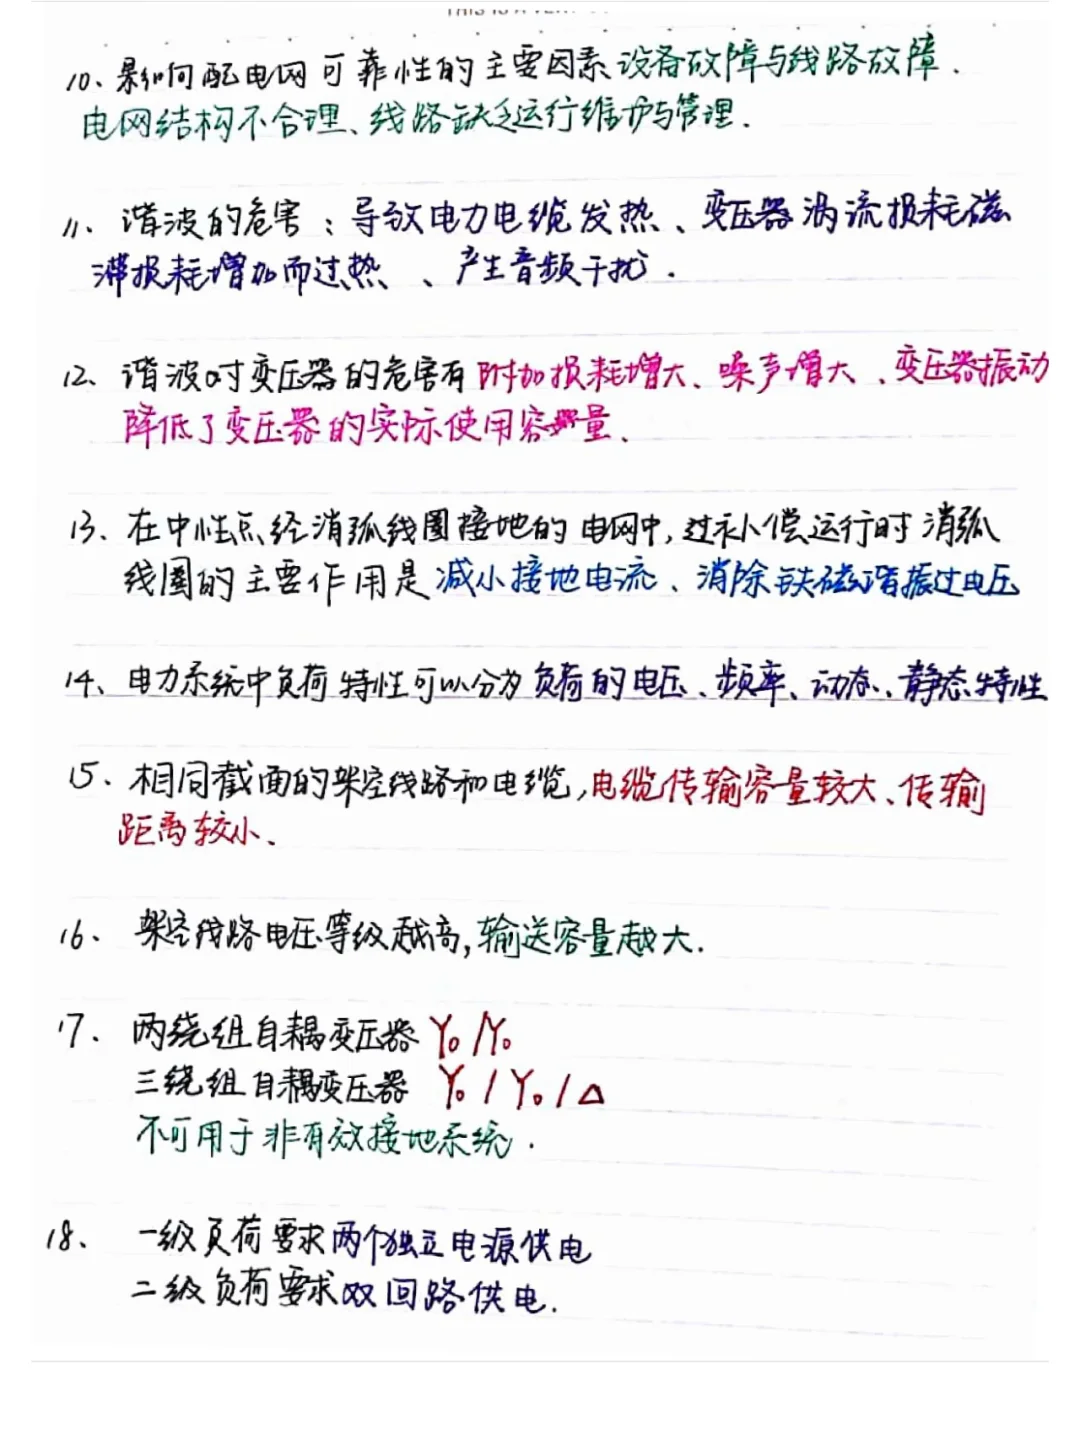 10、影响配电网可靠性的主要因素设备故障与线路故障.
电网结构不合理、线路缺乏运行维护与管理.
11、谐波的危害：导致电力电缆发热、变压器涡流损耗磁
滞损耗增加而过热、产生音频干扰.
12、谐波对变压器的危害有附加损耗增大、噪声增大、变压器振动
降低了变压器的实际使用容量、
13、在中性点经消弧线圈接地的电网中,过补偿运行时消弧
线圈的主要作用是减小接地电流、消除铁磁谐振过电压
14、电力系统中负荷特性可以分为负荷的电压、频率、动态、静态特性
15、相同截面的架空线路和电缆,电缆传输容量较大、传输
距离较小、
16、架空线路电压等级越高,输送容量越大.
17、两绕组自耦变压器 Y₀/Y₀
三绕组自耦变压器 Y₀/Y₀/△
不可用于非有效接地系统.
18、一级负荷要求两个独立电源供电
二级负荷要求双回路供电.